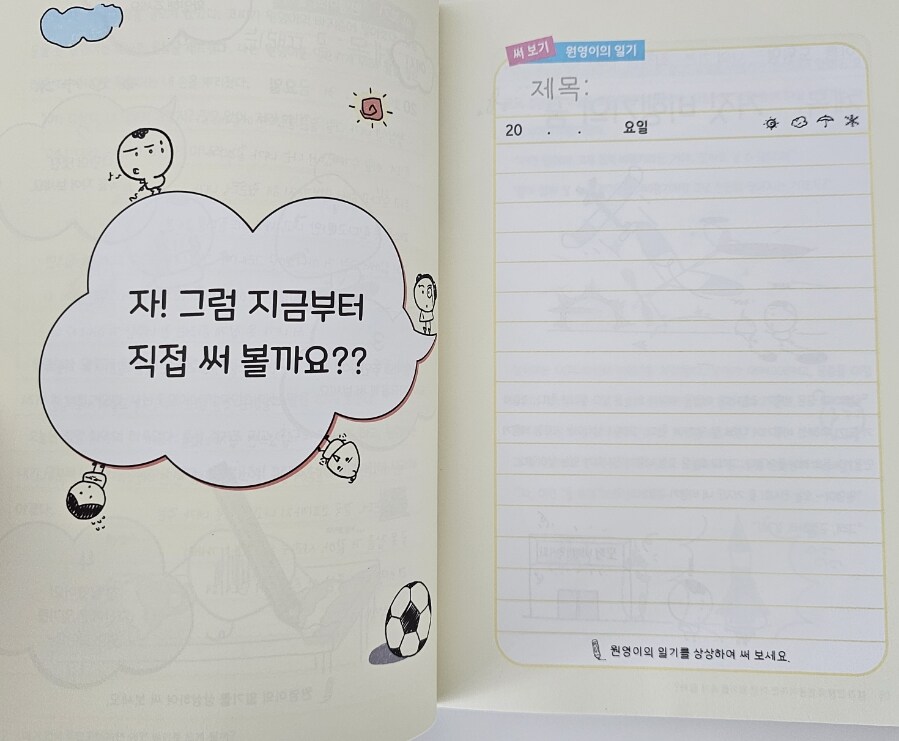 자! 그럼 지금부터
직접 써 볼까요??
써 보기 원영이의 일기
제목:
20 . . 요일
원영이의 일기를 상상하여 써 보세요.